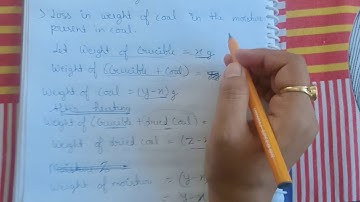 > Loss in weight of coal is the moisture
present in coal.
Let weight of crucible = x g
Weight of (crucible + coal) =
Weight of coal = (y-x) g
After heating
Weight of (crucible + dried coal) =
Weight of dried coal = (z-x
Weight of moisture = (y-x
= y-x